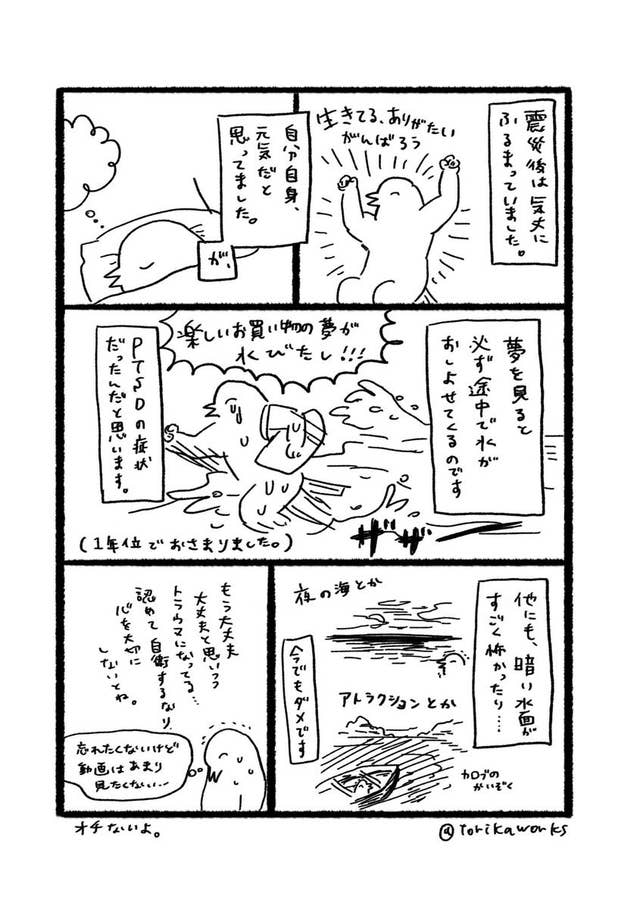 震災後は気丈に
ふるまっていました。
生きてる、ありがたい
がんばろう
自分自身、
元気だと
思ってました。
が、
夢を見ると
必ず途中で水が
おしよせてくるのです
楽しいお買い物の夢が
水びたし!!!
PTSDの症状
だったんだと思います。
(1年位でおさまりました。)
ザザー
他にも、暗い水面が
すごく怖かったり……
夜の海とか
アトラクションとか
カリブの
かいぞく
今でもダメです
もう大丈夫
大丈夫と思いつつ
トラウマになってる…
認めて自衛するなり
心を大切に
しないとね。
忘れたくないけど
動画はあまり
見たくない…
オチないよ。
@torikaworks